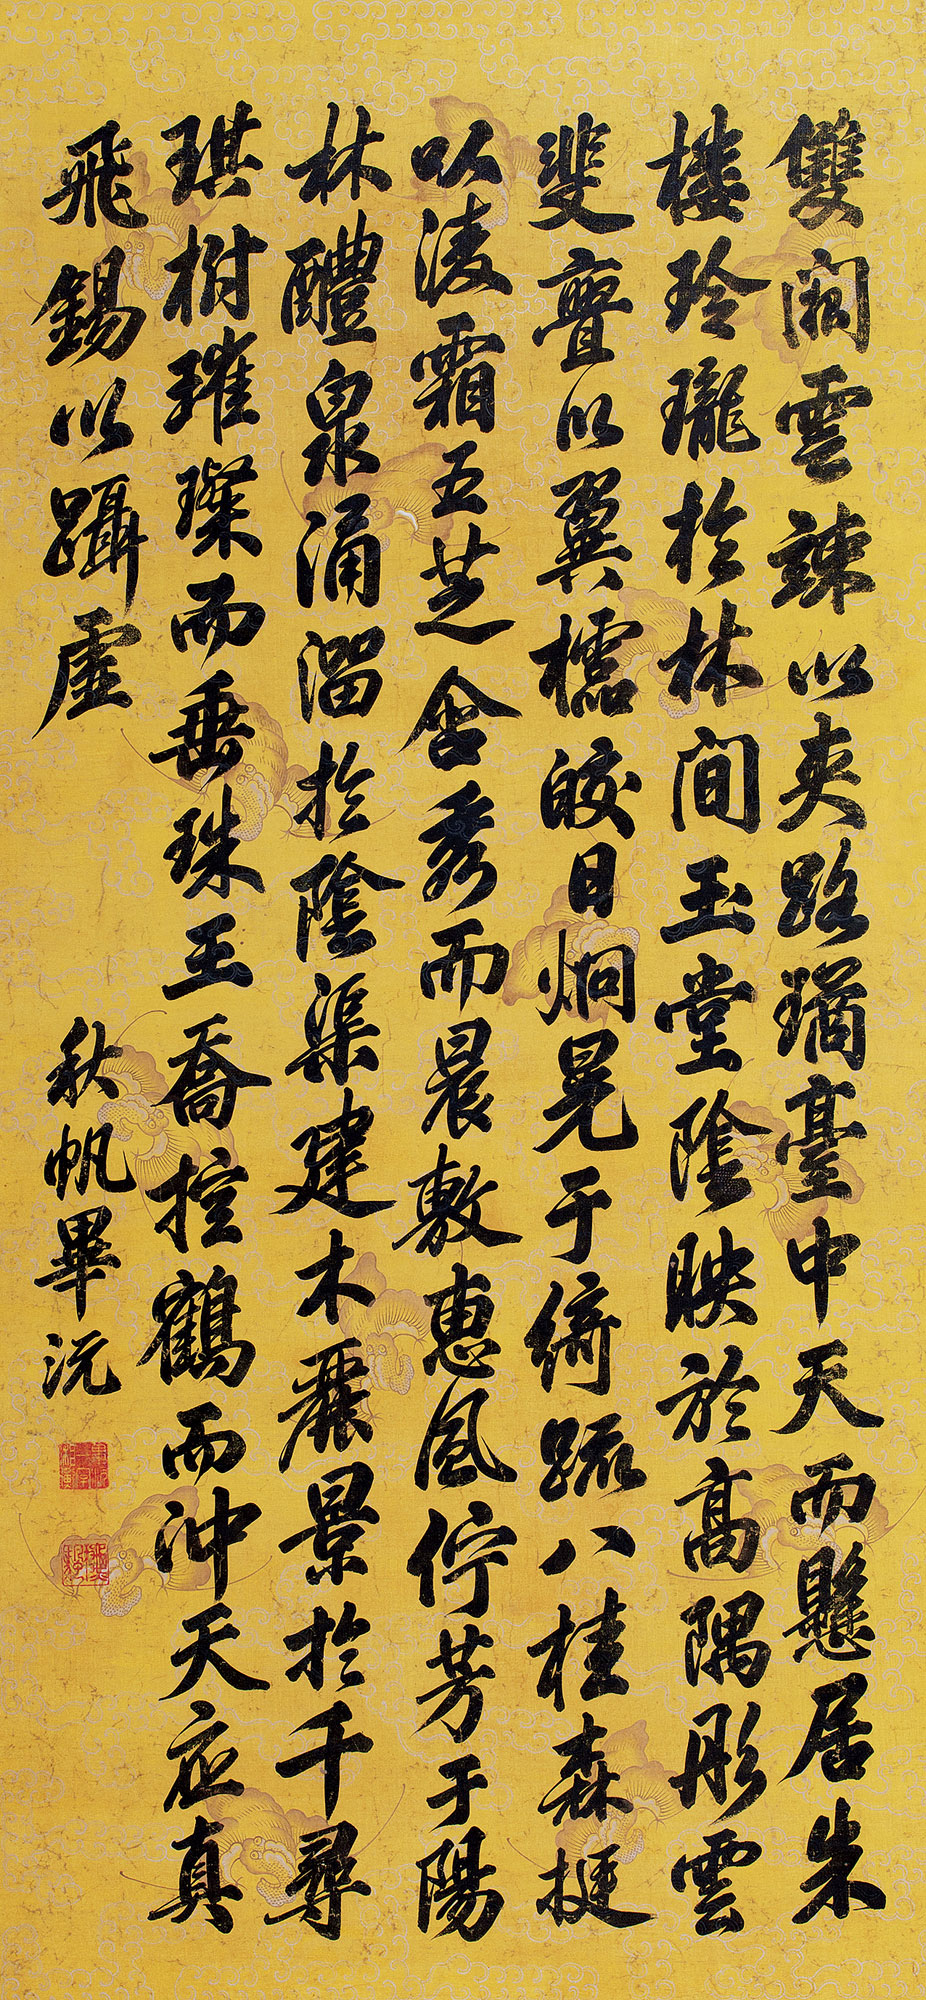 雙闕雲竦以夾路璚臺中天而懸居朱
樓玲瓏於林間玉堂陰映於高隅彤雲
斐亹以翼櫺皎日炯晃于綺疏八桂森挺
以淩霜五芝含秀而晨敷惠風佇芳于陽
林醴泉涌溜於陰渠建木麗景於千尋
琪樹璀璨而垂珠王喬控鶴而沖天應真
飛錫以躡虛
秋帆畢沅